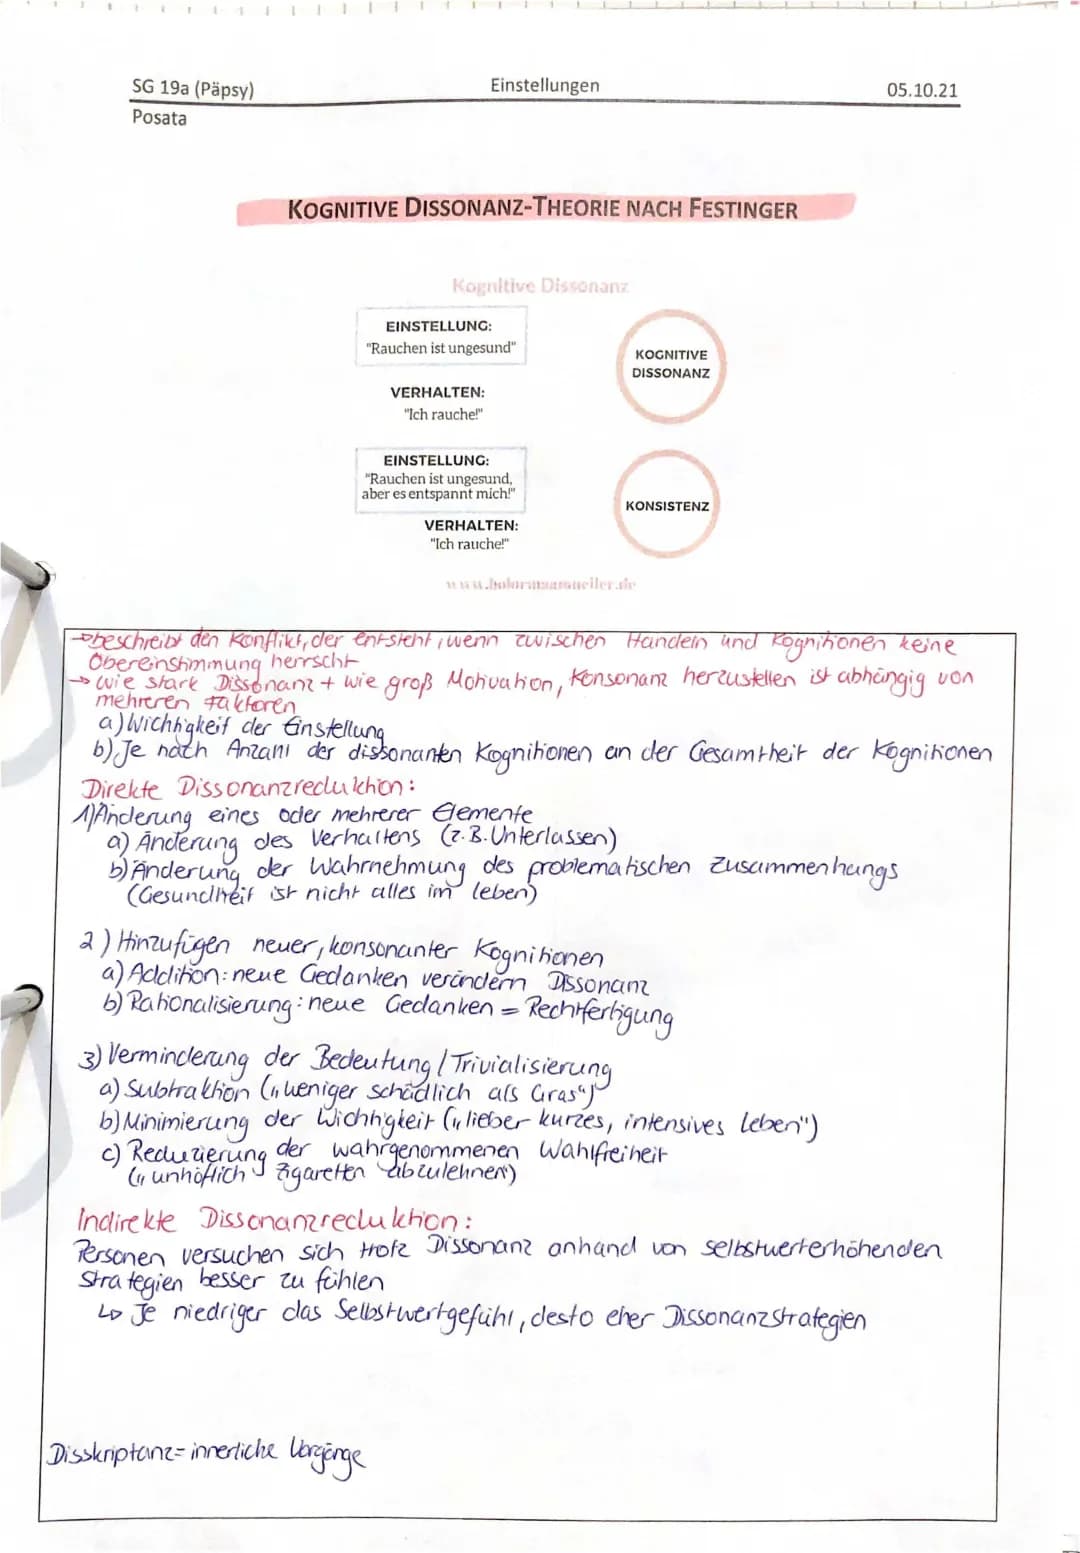 SG 19a (Päpsy)
Einstellungen
05.10.21
Posata
KOGNITIVE DISSONANZ-THEORIE NACH FESTINGER
Kognitive Dissonanz
EINSTELLUNG:
"Rauchen ist ungesund"
KOGNITIVE
DISSONANZ
VERHALTEN:
"Ich rauche!"
EINSTELLUNG:
"Rauchen ist ungesund,
aber es entspannt mich!"
KONSISTENZ
VERHALTEN:
"Ich rauche!"
→beschreibt den Konflikt, der entsteht, wenn zwischen Handeln und Kognitionen keine
Übereinstimmung herrscht
→ wie stark Dissonanz + wie groß Motivation, Konsonanz herzustellen ist abhängig von
mehreren Faktoren
a) Wichtigkeit der Einstellung
b) Je nach Anzahl der dissonanten Kognitionen an der Gesamtheit der Kognitionen
Direkte Dissonanzreduktion:
1) Änderung eines oder mehrerer Elemente
a) Änderung des Verhaltens (z.B. Unterlassen)
b) Änderung der Wahrnehmung des problematischen Zusammenhangs
(Gesundheit ist nicht alles im leben)
2) Hinzufügen neuer, konsonanter Kognitionen
a) Addition: neue Gedanken verändern Dissonanz
b) Rationalisierung: neue Gedanken = Rechtfertigung
3) Verminderung der Bedeutung / Trivialisierung
a) Subtraktion („weniger schädlich als Gras")
b) Minimierung der Wichtigkeit („lieber kurzes, intensives Leben")
c) Reduzierung der wahrgenommenen Wahlfreiheit
(„unhöflich Zigaretten abzulehnen")
Indirekte Dissonanzreduktion:
Personen versuchen sich trotz Dissonanz anhand von selbstwerterhöhenden
Strategien besser zu fühlen
↳ Je niedriger das Selbstwertgefühl, desto eher Dissonanzstrategien
Disskriptanz= innerliche Vorgänge